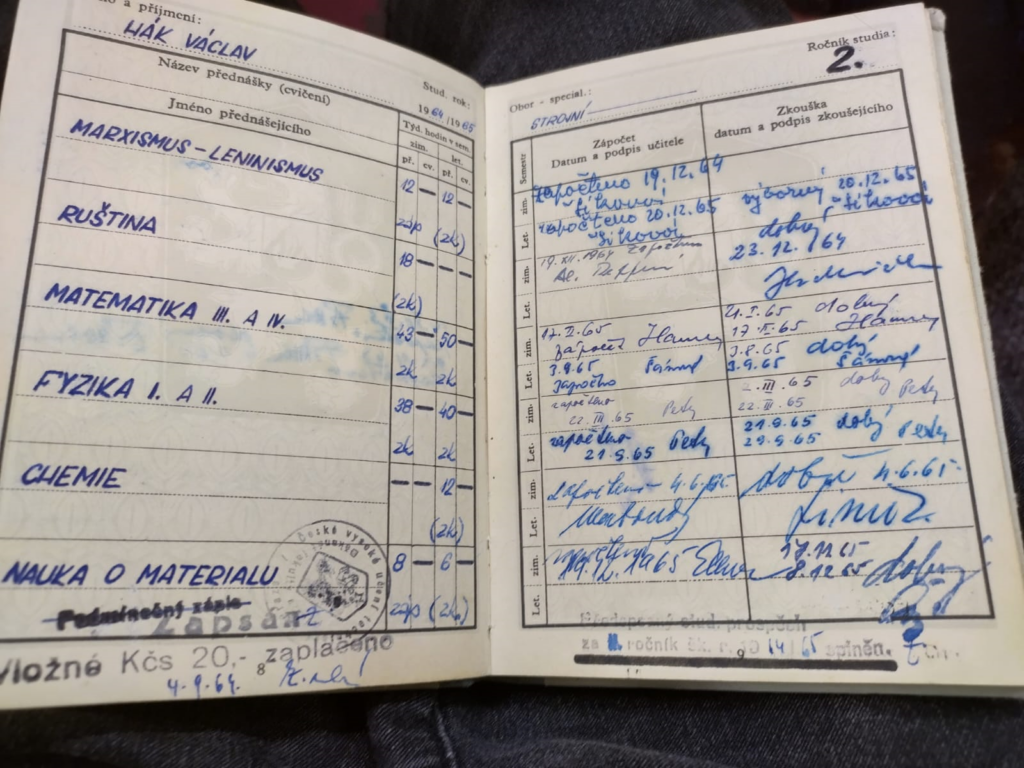 o a příjmení:
HÁK VÁCLAV
Název přednášky (cvičení)
Stud. rok:
1964/1965
Jméno přednášejícího
Týd. hodin v sem.
zim. let.
př. cv. př. cv.
MARXISMUS-LENINISMUS
12 — 12 —
záp (zk)
RUŠTINA
18 — — —
(zk)
MATEMATIKA III. A IV.
43 — 50 —
zk zk
FYZIKA I. A II.
38 — 40 —
zk zk
CHEMIE
— — 12 —
(zk)
NAUKA O MATERIALU
8 — 6 —
záp (zk)
Podmínečný zápis
Zapsán
vložné Kčs 20,- zaplaceno
4.9.64.
Ročník studia:
2.
Obor - special.:
STROJNÍ
Semestr
Zápočet
Datum a podpis učitele
Zkouška
datum a podpis zkoušejícího
zim.
Započteno 19.12.64
Šiková
Let.
započteno 20.12.65
Šiková
výborný 20.12.65
Šiková
zim.
19.XII.1964 Započteno
dobrý
23.12.64
Let.
zim.
17.II.65
Zápočet
21.I.65 dobrý
17.II.65
Let.
3.9.65
Započteno
3.8.65 dobrý
3.9.65
zim.
započteno
22.III.65
2.III.65 dobrý
22.III.65
Let.
započteno
21.9.65
21.9.65 dobrý
29.9.65
zim.
Započteno 4.6.65
dobře 4.6.65.
Let.
zim.
1965
17.11.65
8.12.65 dobrý
Let.
Předepsaný stud. prospěch
za II. ročník šk. r. 1964/65 splněn.